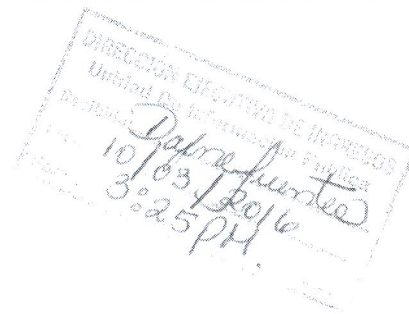 DIRECCIÓN EJECUTIVA DE INGRESOS
Unidad De Información Publica
Recibido: Dafne Fuentes
10/03/2016
3:25 PM.